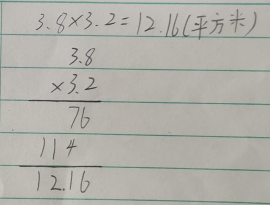 3.8×3.2=12.16(平方米)
3.8
×3.2
76
114
12.16